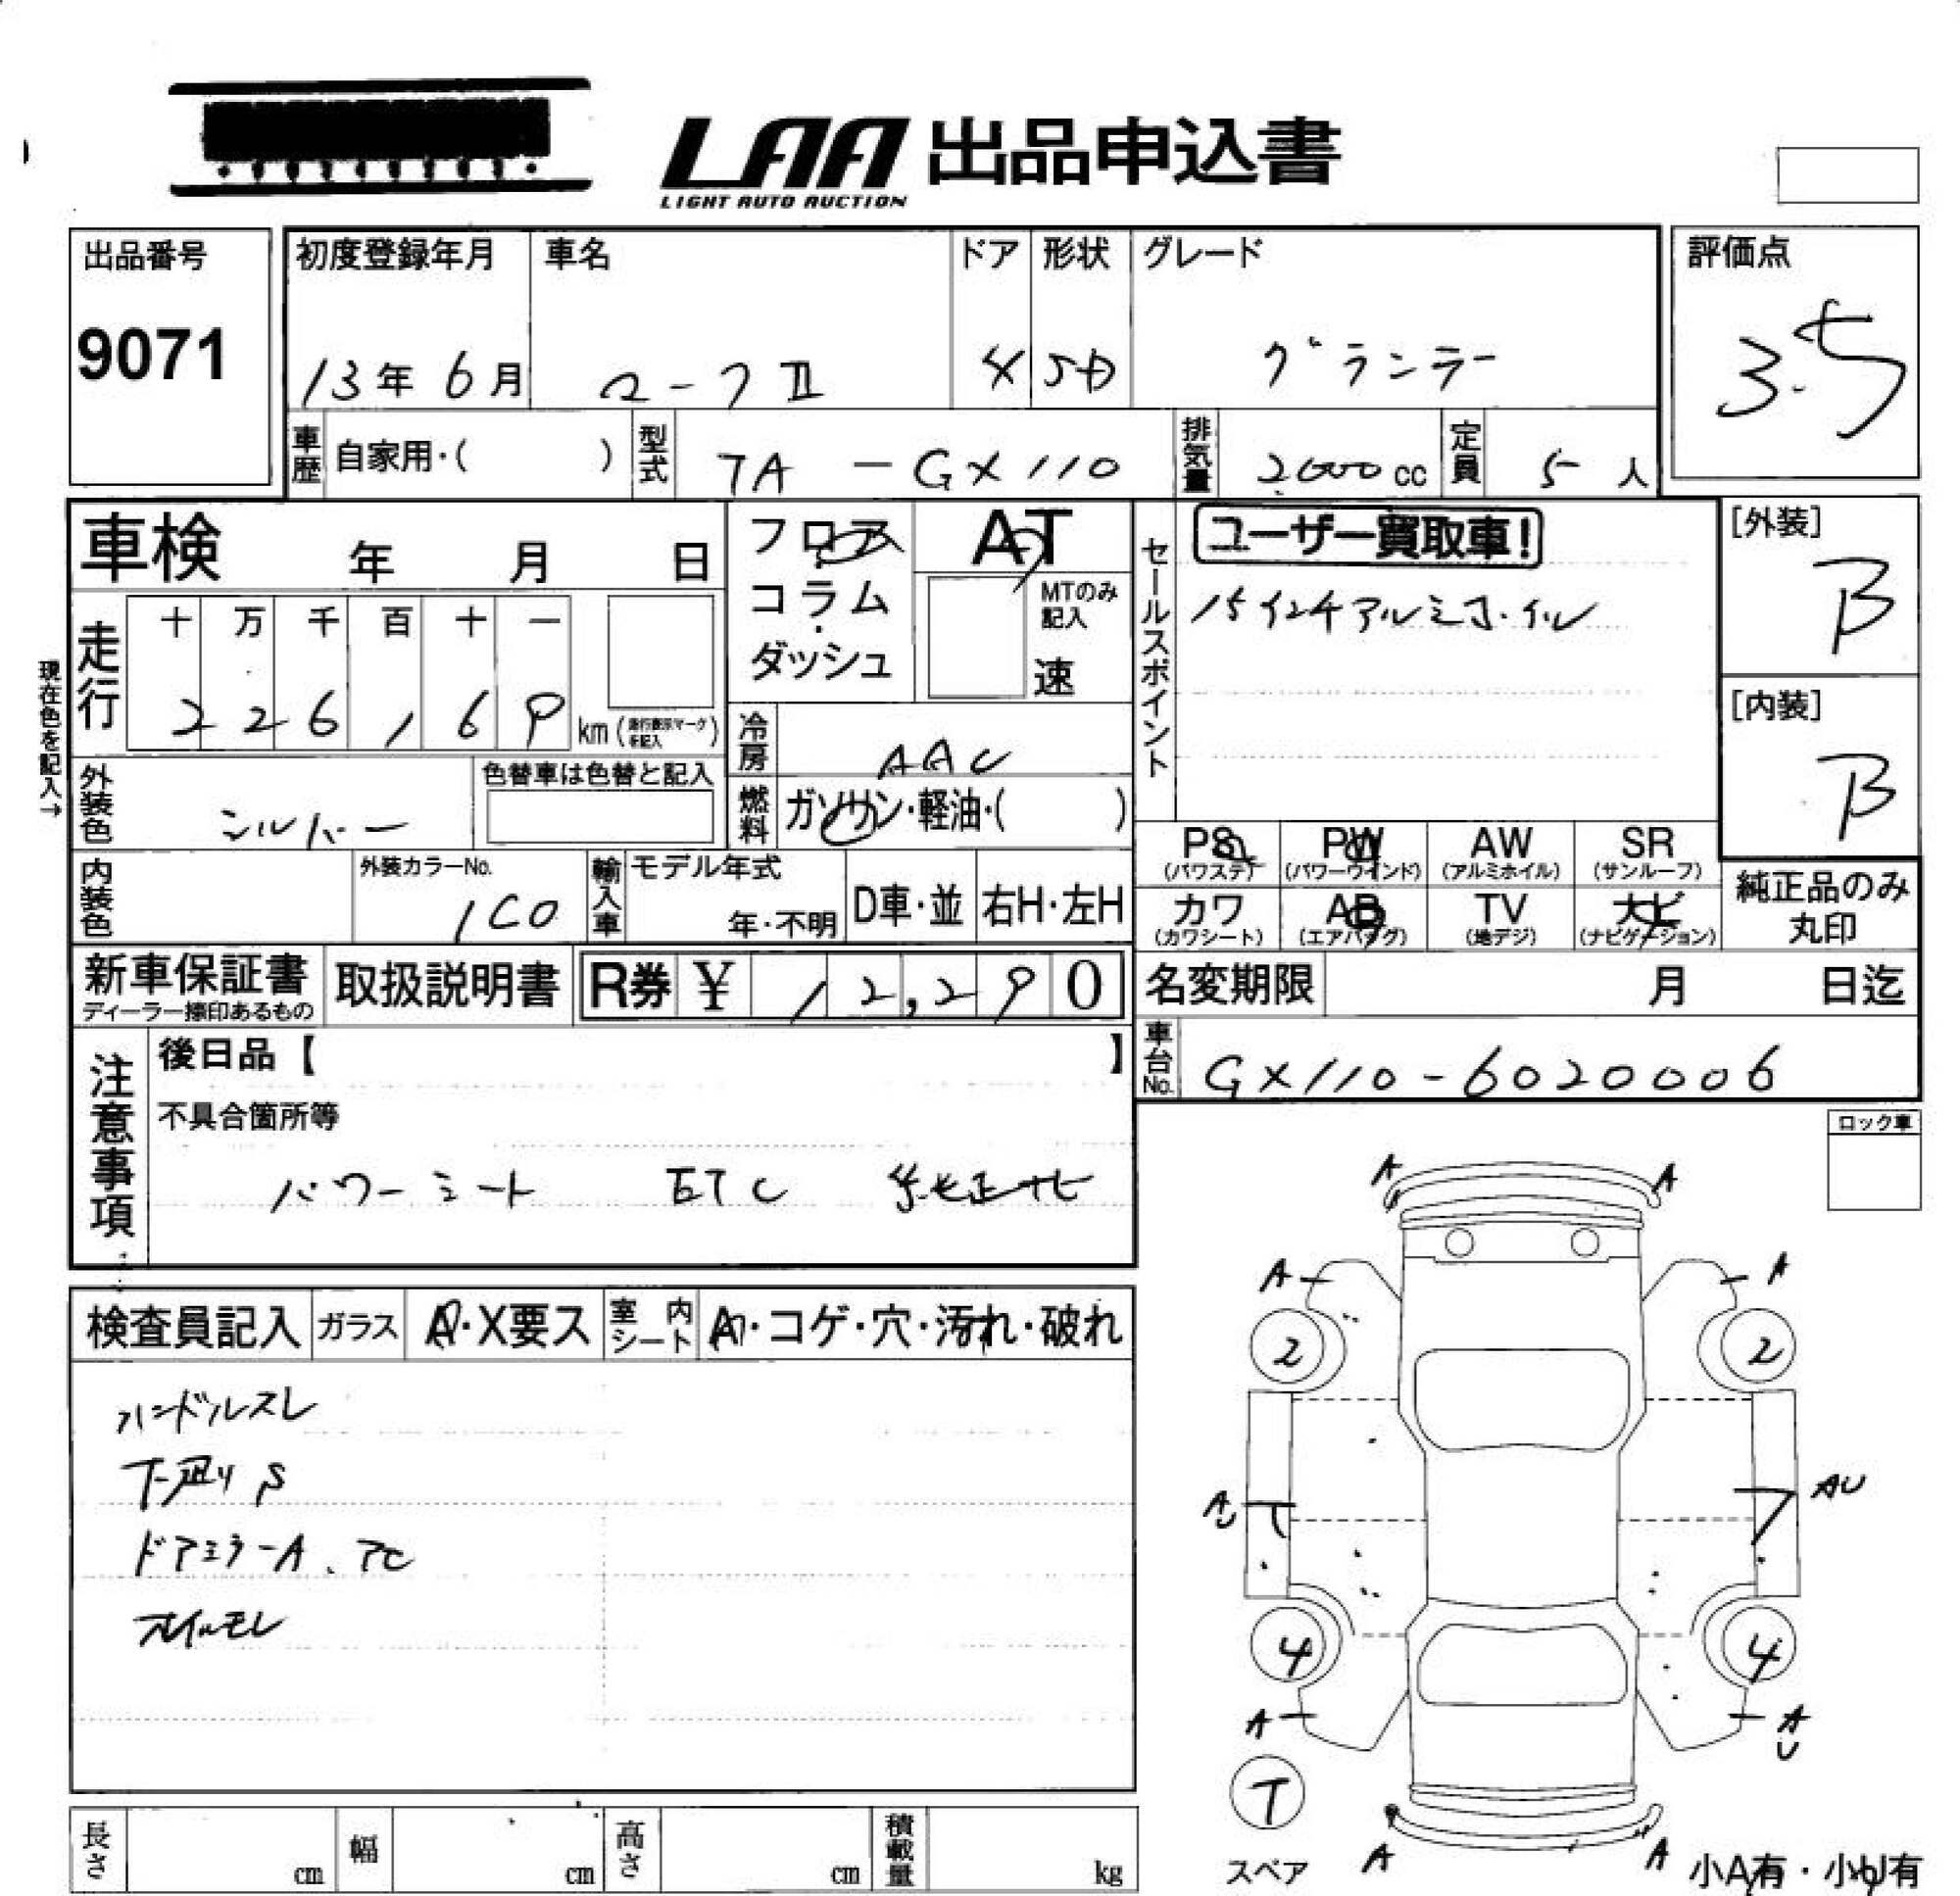 LAA 出品申込書
LIGHT AUTO AUCTION
出品番号
9071
初度登録年月 車名 ドア 形状 グレード
13年 6月 マークⅡ 4 SD グランデ
評価点
3.5
車歴 自家用・( ) 型式 TA - GX110 排気量 2000 cc 定員 5 人
車検 年 月 日
フロア
コラム
ダッシュ
AT
MTのみ
記入
速
セールスポイント
ユーザー買取車!
15インチアルミホイル
[外装]
B
[内装]
B
現在色を記入→
走行
十 万 千 百 十 一
2 2 6 , 1 6 9 km (走行表示マーク を記入)
冷房 AAC
燃料 ガソリン・軽油・( )
外装色 シルバー
色替車は色替と記入
内装色
外装カラーNo.
1C0
輸入車 モデル年式
年・不明 D車・並 右H・左H
PS PW AW SR
(パワステ) (パワーウインド) (アルミホイル) (サンルーフ)
カワ AB TV ナビ
(カワシート) (エアバッグ) (地デジ) (ナビゲーション)
純正品のみ
丸印
新車保証書
ディーラー捺印あるもの
取扱説明書
R券 ¥ 12,290
名変期限 月 日迄
車台No. GX110-6020006
注意事項
後日品【 】
不具合箇所等
パワーシート ETC 純正ナビ
ロック車
検査員記入 ガラス A・X要ス 室内シート A・コゲ・穴・汚れ・破れ
ハンドルスレ
下廻りS
ドアミラーA、
オイルモレ
A A
A A
2 2
AU AU
4 4
A AU
T
スペア
A A
小A有・小U有
長さ cm 幅 cm 高さ cm 積載量 kg